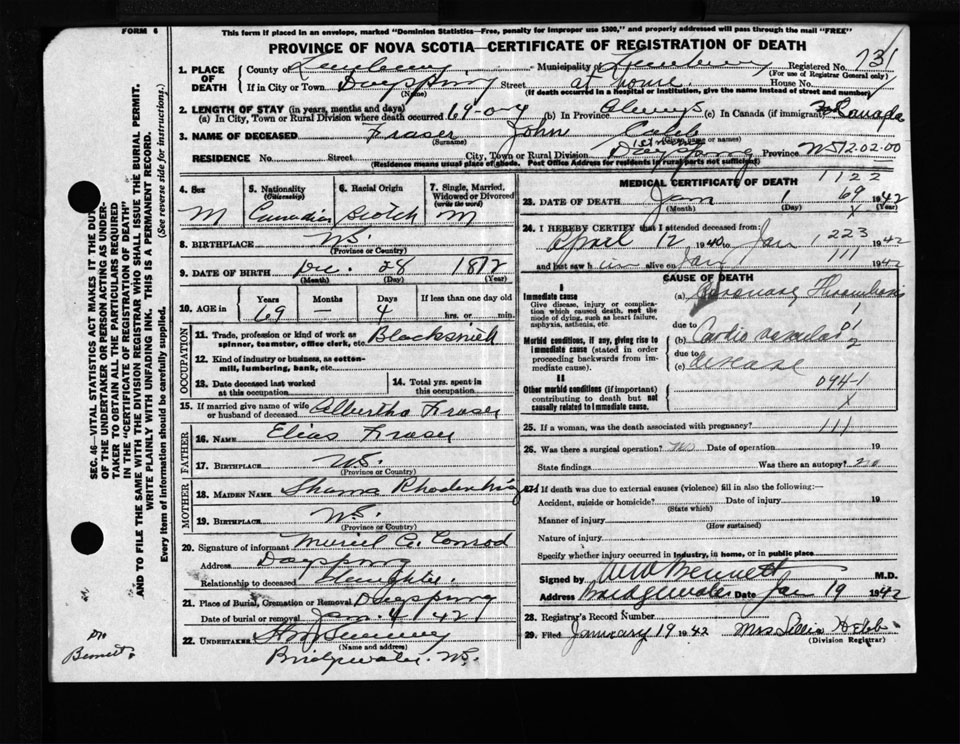 FORM 6
This form if placed in an envelope, marked "Dominion Statistics—Free, penalty for improper use $300," and properly addressed will pass through the mail "FREE"
PROVINCE OF NOVA SCOTIA—CERTIFICATE OF REGISTRATION OF DEATH
1. PLACE OF DEATH
County of Lunenburg Municipality of Lunenburg Registered No. 731
(For use of Registrar General only)
If in City or Town Dayspring Street at home House No.
(Name) (If death occurred in a hospital or institution, give the name instead of street and number)
2. LENGTH OF STAY (in years, months and days)
(a) In City, Town or Rural Division where death occurred 69-0-4 (b) In Province Always (c) In Canada (if immigrant) Canada
3. NAME OF DECEASED Fraser John Caleb
(Surname) (Given name or names)
RESIDENCE No. Street City, Town or Rural Division Dayspring Province NS 12.02.00
(Residence means usual place of abode. Post Office Address for residents in rural parts not sufficient)
4. Sex
M
5. Nationality
(Citizenship)
Canadian
6. Racial Origin
Scotch
7. Single, Married, Widowed or Divorced
(write the word)
M
8. BIRTHPLACE N.S.
(Province or Country)
9. DATE OF BIRTH Dec. 28 1872
(Month) (Day) (Year)
10. AGE in
Years Months Days If less than one day old
69 — 4 hrs. or min.
OCCUPATION
11. Trade, profession or kind of work as spinner, teamster, office clerk, etc. Blacksmith
12. Kind of industry or business, as cotton-mill, lumbering, bank, etc.
13. Date deceased last worked at this occupation
14. Total yrs. spent in this occupation
15. If married give name of wife or husband of deceased Albertha Fraser
FATHER
16. NAME Elias Fraser
17. BIRTHPLACE N.S.
(Province or Country)
MOTHER
18. MAIDEN NAME Rhodenhizer
19. BIRTHPLACE N.S.
(Province or Country)
20. Signature of informant Muriel C. Conrod
Address Dayspring
Relationship to deceased Daughter.
21. Place of Burial, Cremation or Removal Dayspring
Date of burial or removal Jan. 4 1942
22. UNDERTAKER
(Name and address)
Bridgewater. N.S.
MEDICAL CERTIFICATE OF DEATH
1122
23. DATE OF DEATH Jan 1 1942
(Month) (Day) (Year)
69
X
24. I HEREBY CERTIFY that I attended deceased from:
April 12 1940 to Jan 1 1942
223
and last saw him alive on Jan 1 1942
111
CAUSE OF DEATH
I
Immediate cause
Give disease, injury or complication which caused death, not the mode of dying, such as heart failure, asphyxia, asthenia, etc.
(a) Coronary Thrombosis
due to
Morbid conditions, if any, giving rise to immediate cause (stated in order proceeding backwards from immediate cause).
(b) Cardio vascular
due to
(c) disease
1
01
2
II
Other morbid conditions (if important) contributing to death but not causally related to immediate cause.
094-1
X
25. If a woman, was the death associated with pregnancy? 111
26. Was there a surgical operation? no Date of operation 19
State findings Was there an autopsy? no
27. If death was due to external causes (violence) fill in also the following:—
Accident, suicide or homicide? Date of injury 19
(State which)
Manner of injury
(How sustained)
Nature of injury
Specify whether injury occurred in industry, in home, or in public place
Signed by Bennett M.D.
Address Bridgewater Date Jan 19 1942
28. Registrar's Record Number
29. Filed January 19 1942 Mrs Hebb
(Division Registrar)
SEC. 46—VITAL STATISTICS ACT MAKES IT THE DUTY OF THE UNDERTAKER OR PERSON ACTING AS UNDERTAKER TO OBTAIN ALL THE PARTICULARS REQUIRED IN THE "CERTIFICATE OF REGISTRATION OF DEATH"
AND TO FILE THE SAME WITH THE DIVISION REGISTRAR WHO SHALL ISSUE THE BURIAL PERMIT.
WRITE PLAINLY WITH UNFADING INK. THIS IS A PERMANENT RECORD.
Every item of information should be carefully supplied. (See reverse side for instructions.)
Dr.
Bennett